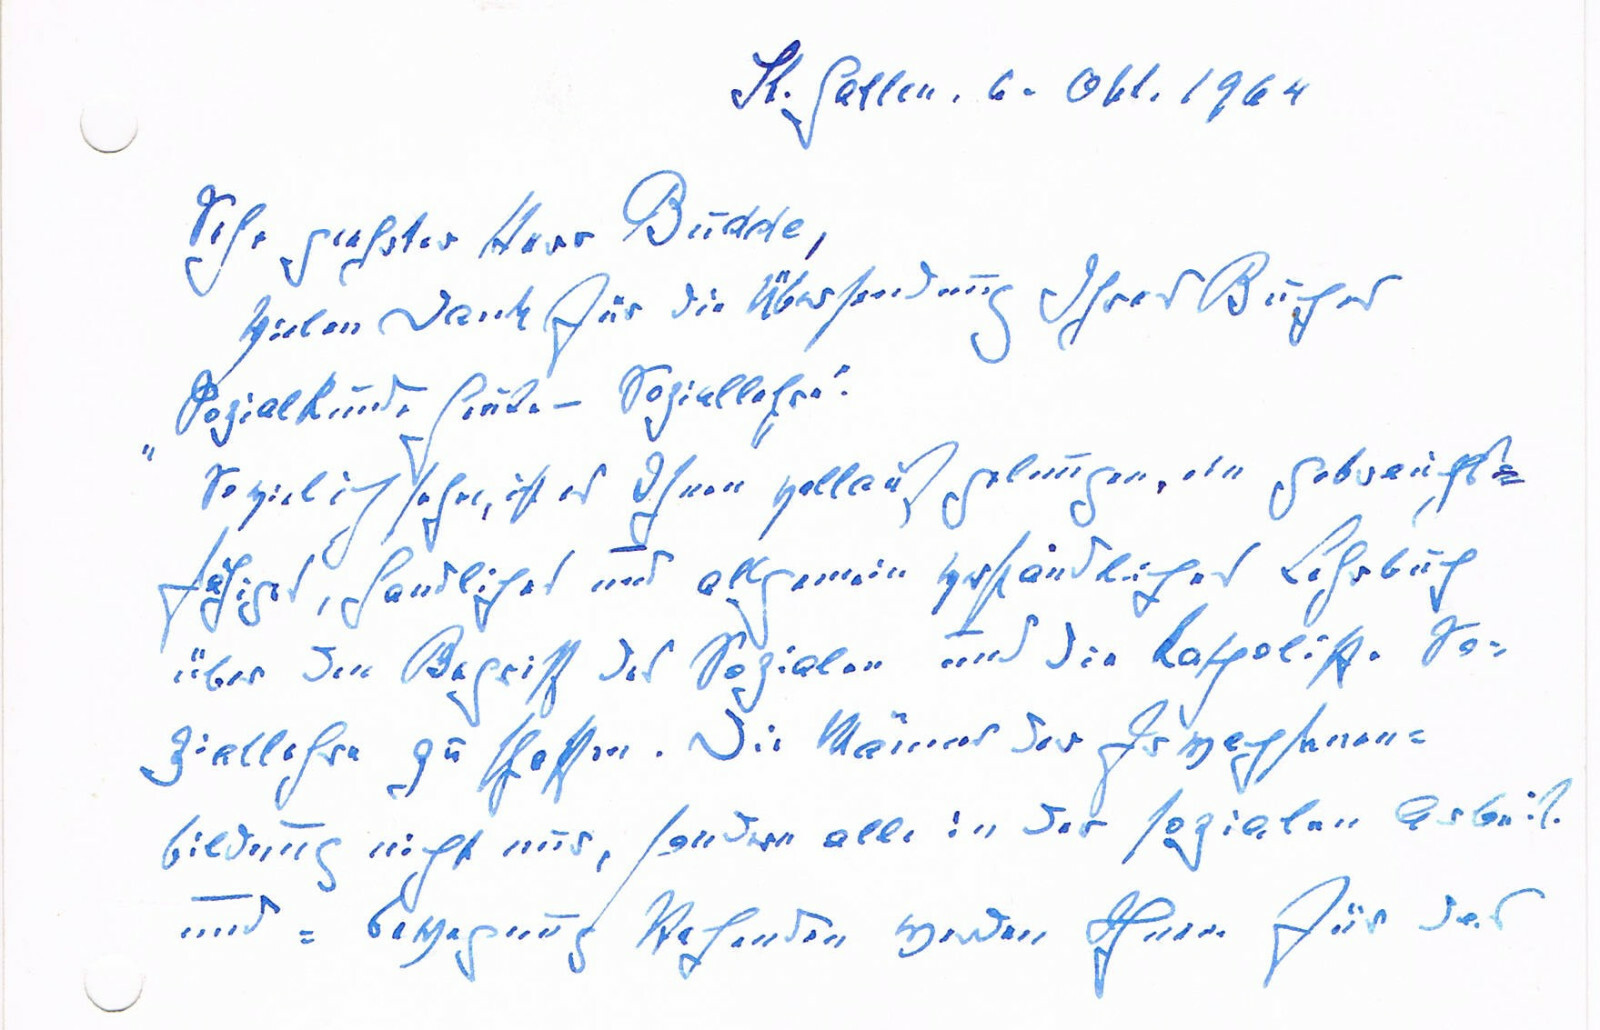 St. Gallen. 6. Okt. 1964
Sehr geehrter Herr Budde,
Vielen Dank für die Übersendung Ihres Buches
"Sozialkunde heute – Soziallehre".
Soviel ich sehe, ist es Ihnen vollauf gelungen, ein gebrauchs=
fähiges, handliches und allgemein verständliches Lehrbuch
über den Begriff des Sozialen und die katholische So=
ziallehre zu schaffen. Die Männer der Erwachsenen=
bildung nicht nur, sondern alle in der sozialen Arbeit
und = bewegung Stehenden werden Ihnen für das